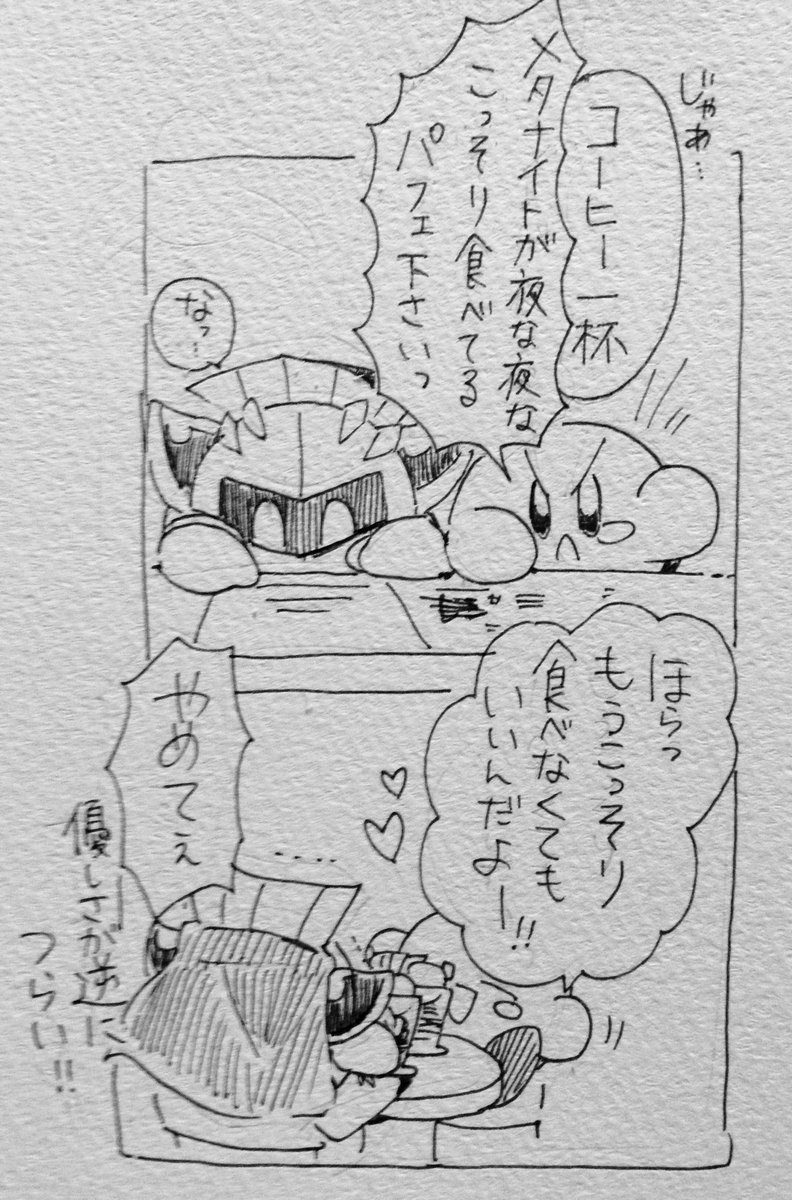 じゃあ…
コーヒー一杯
メタナイトが夜な夜な
こっそり食べてる
パフェ下さいっ
なっ…
ほらっ
もうこっそり
食べなくても
いいんだよー!!
やめてぇ
優しさが逆に
つらい!!